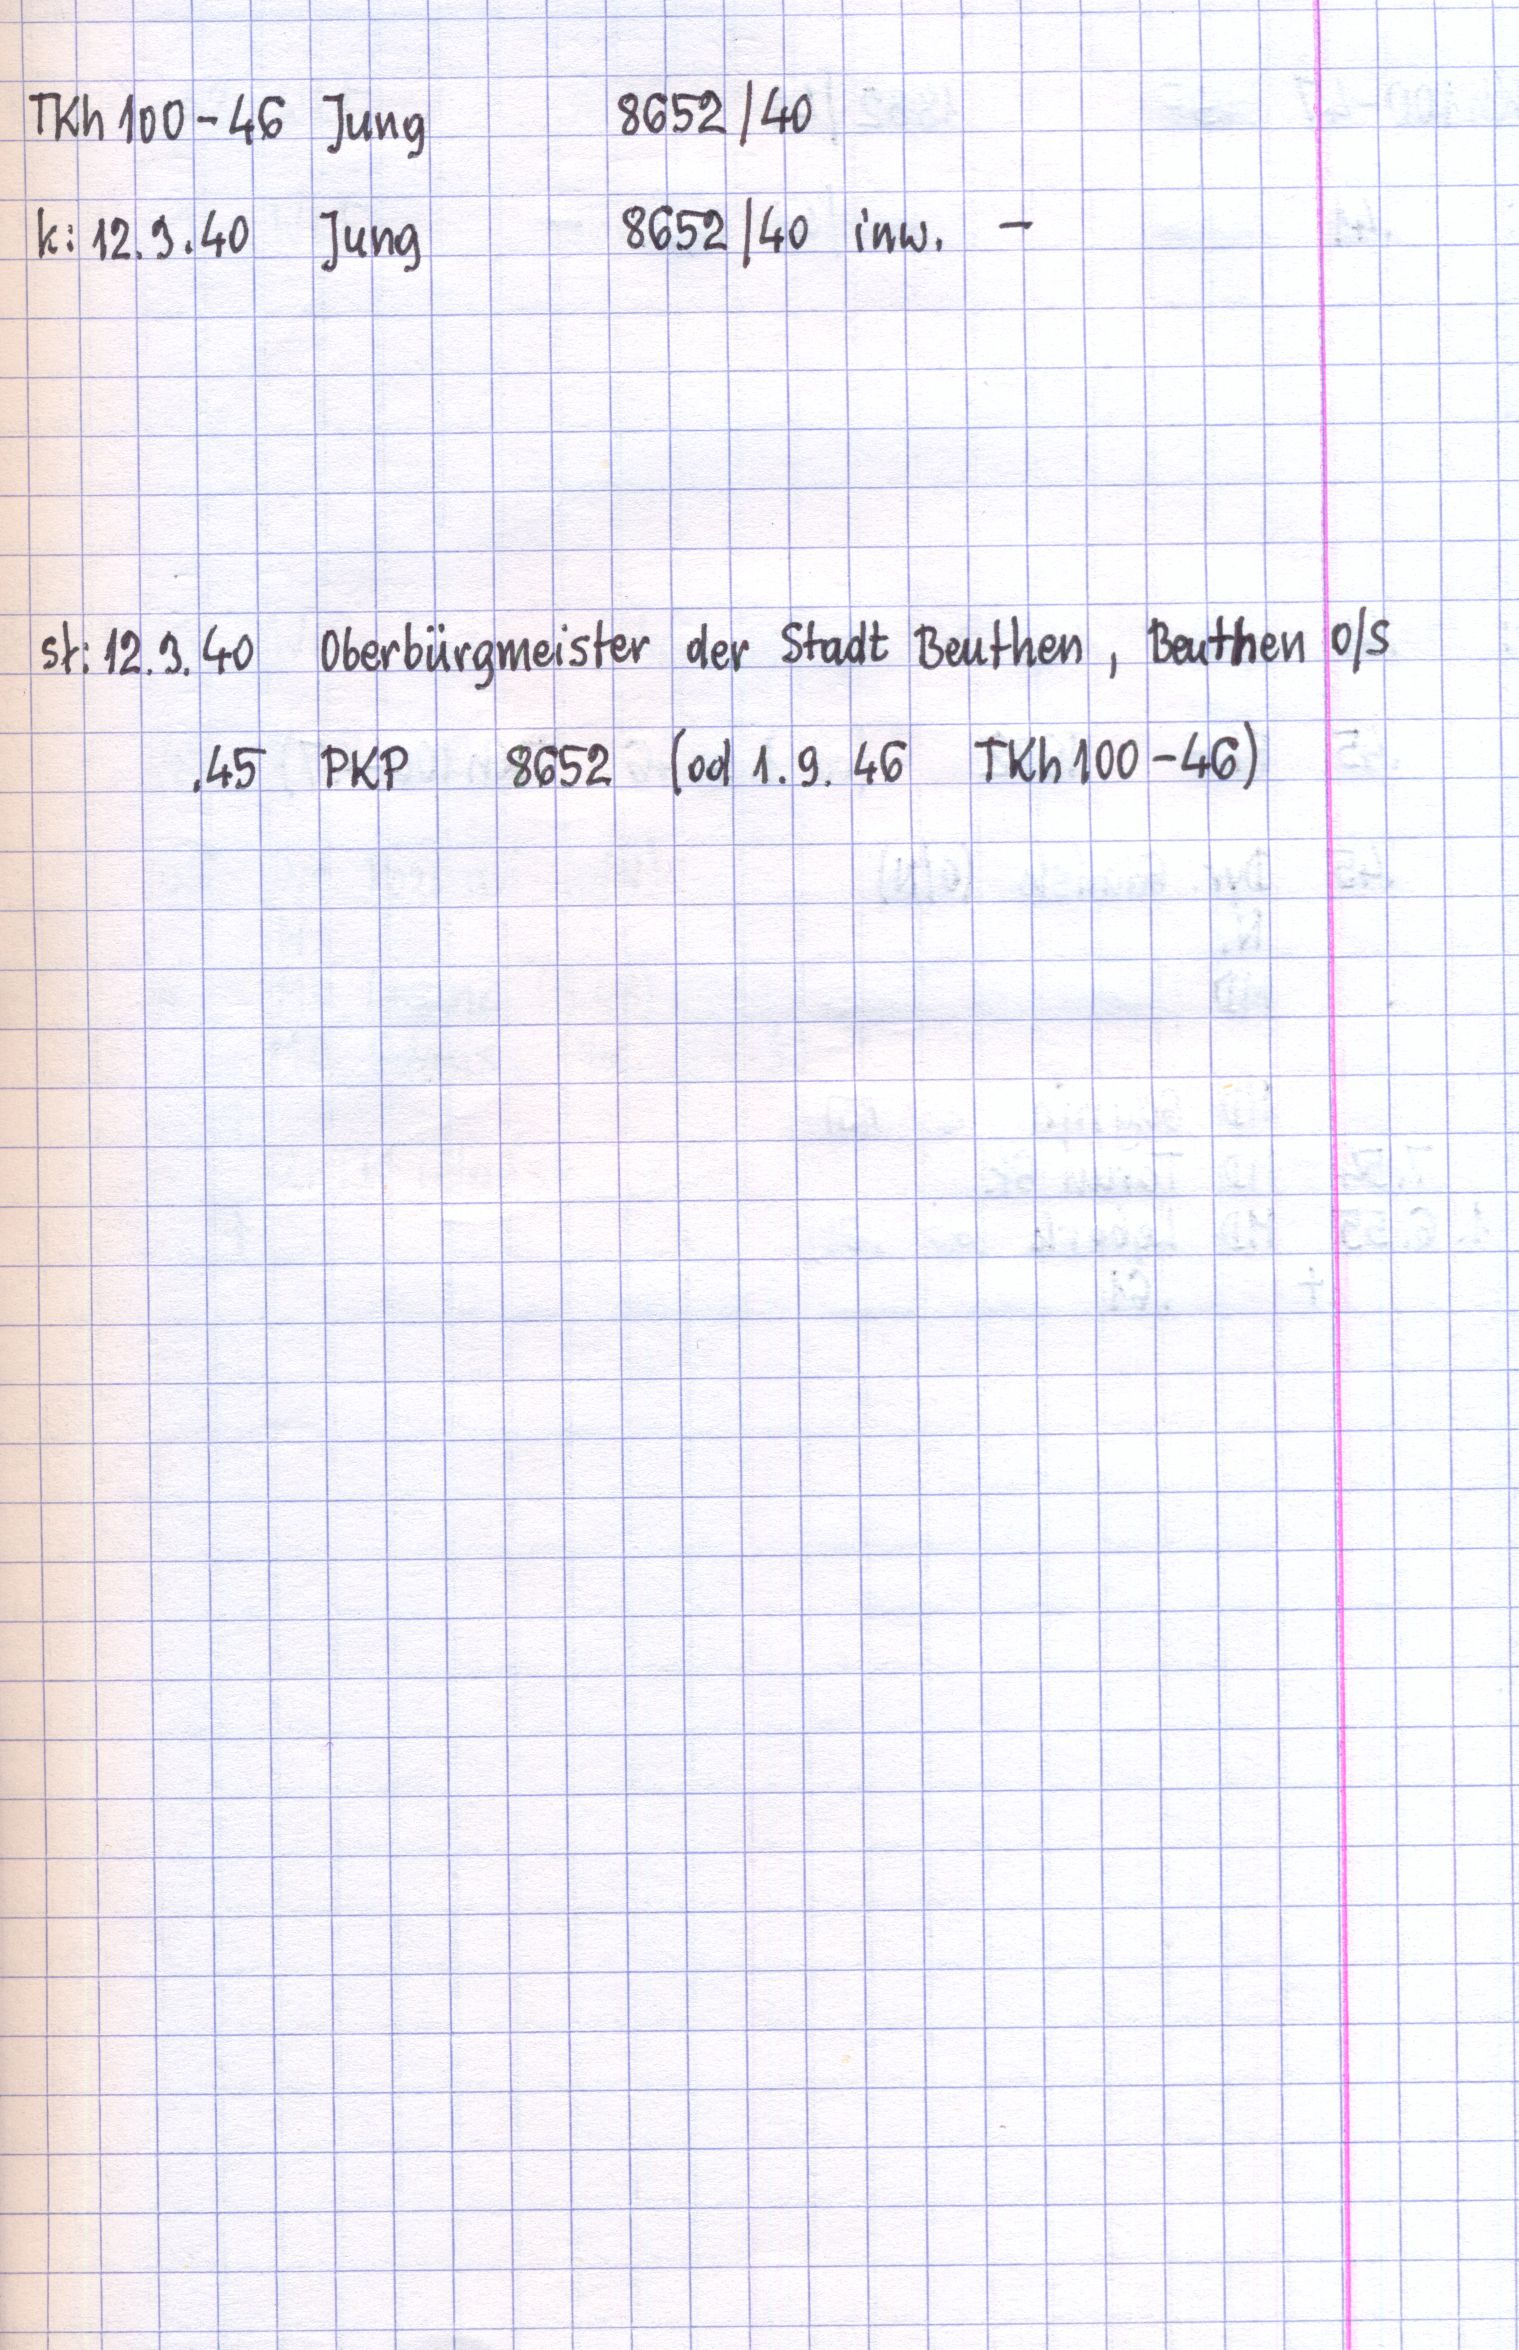 TKh 100-46 Jung 8652/40
k: 12.9.40 Jung 8652/40 inw. -
st: 12.9.40 Oberbürgmeister der Stadt Beuthen, Beuthen O/S
.45 PKP 8652 (od 1.9.46 TKh 100-46)